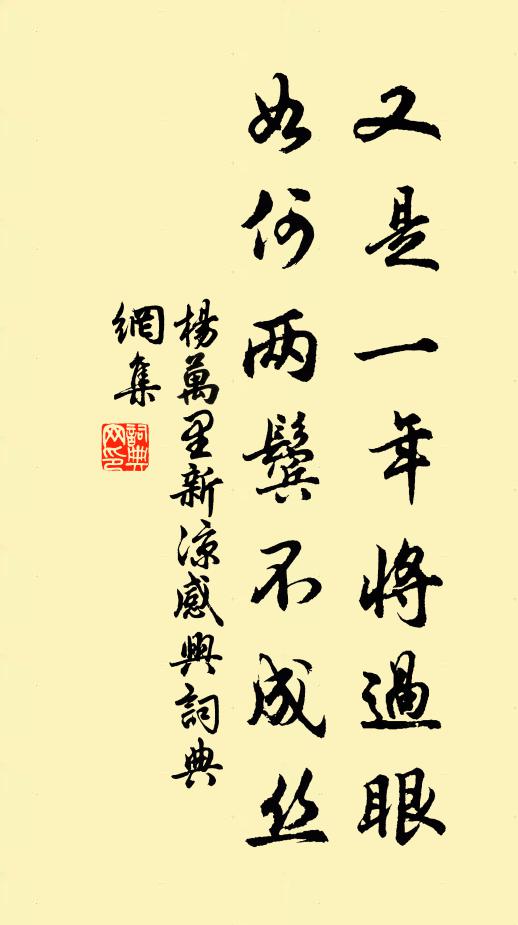 又是一年将過眼
如何两鬓不成丝
楊萬里新涼感興詞典
網集
詞典
网印